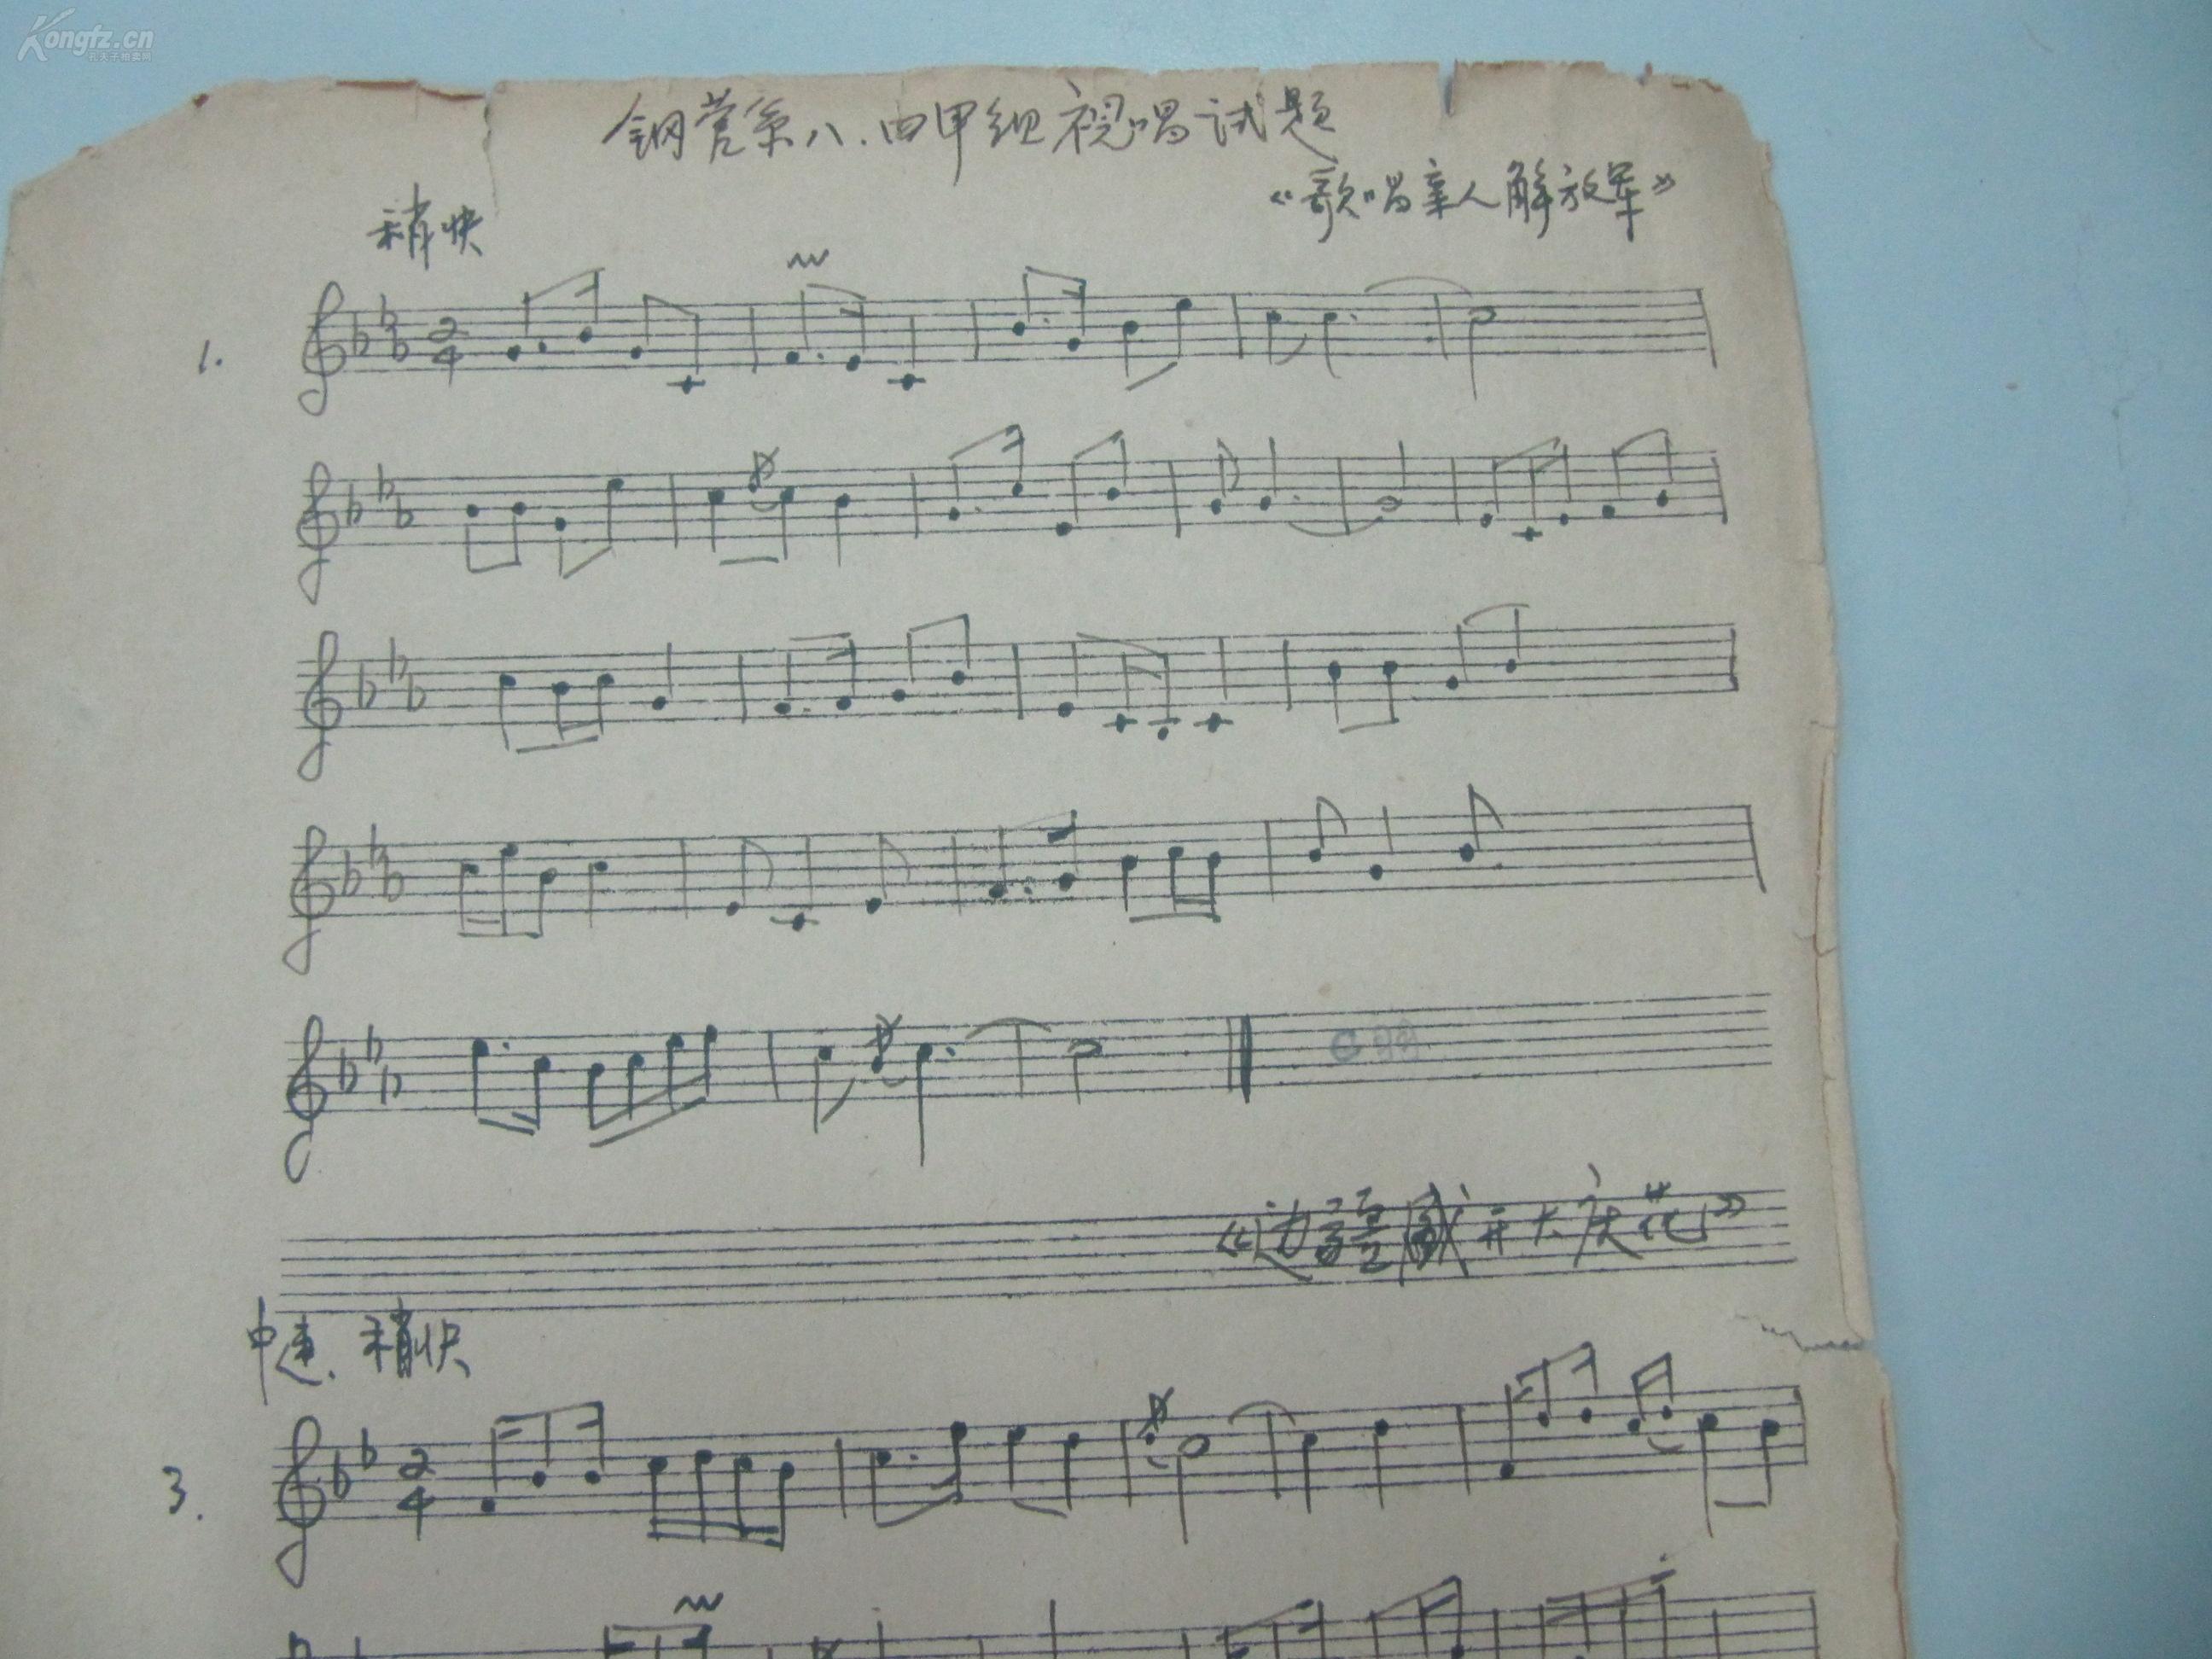 Kongfz.cn
钢管系八.四甲组视唱试题
《歌唱亲人解放军》
稍快
1.
2
4
开大庆花》
中速.稍快
3.
2
4